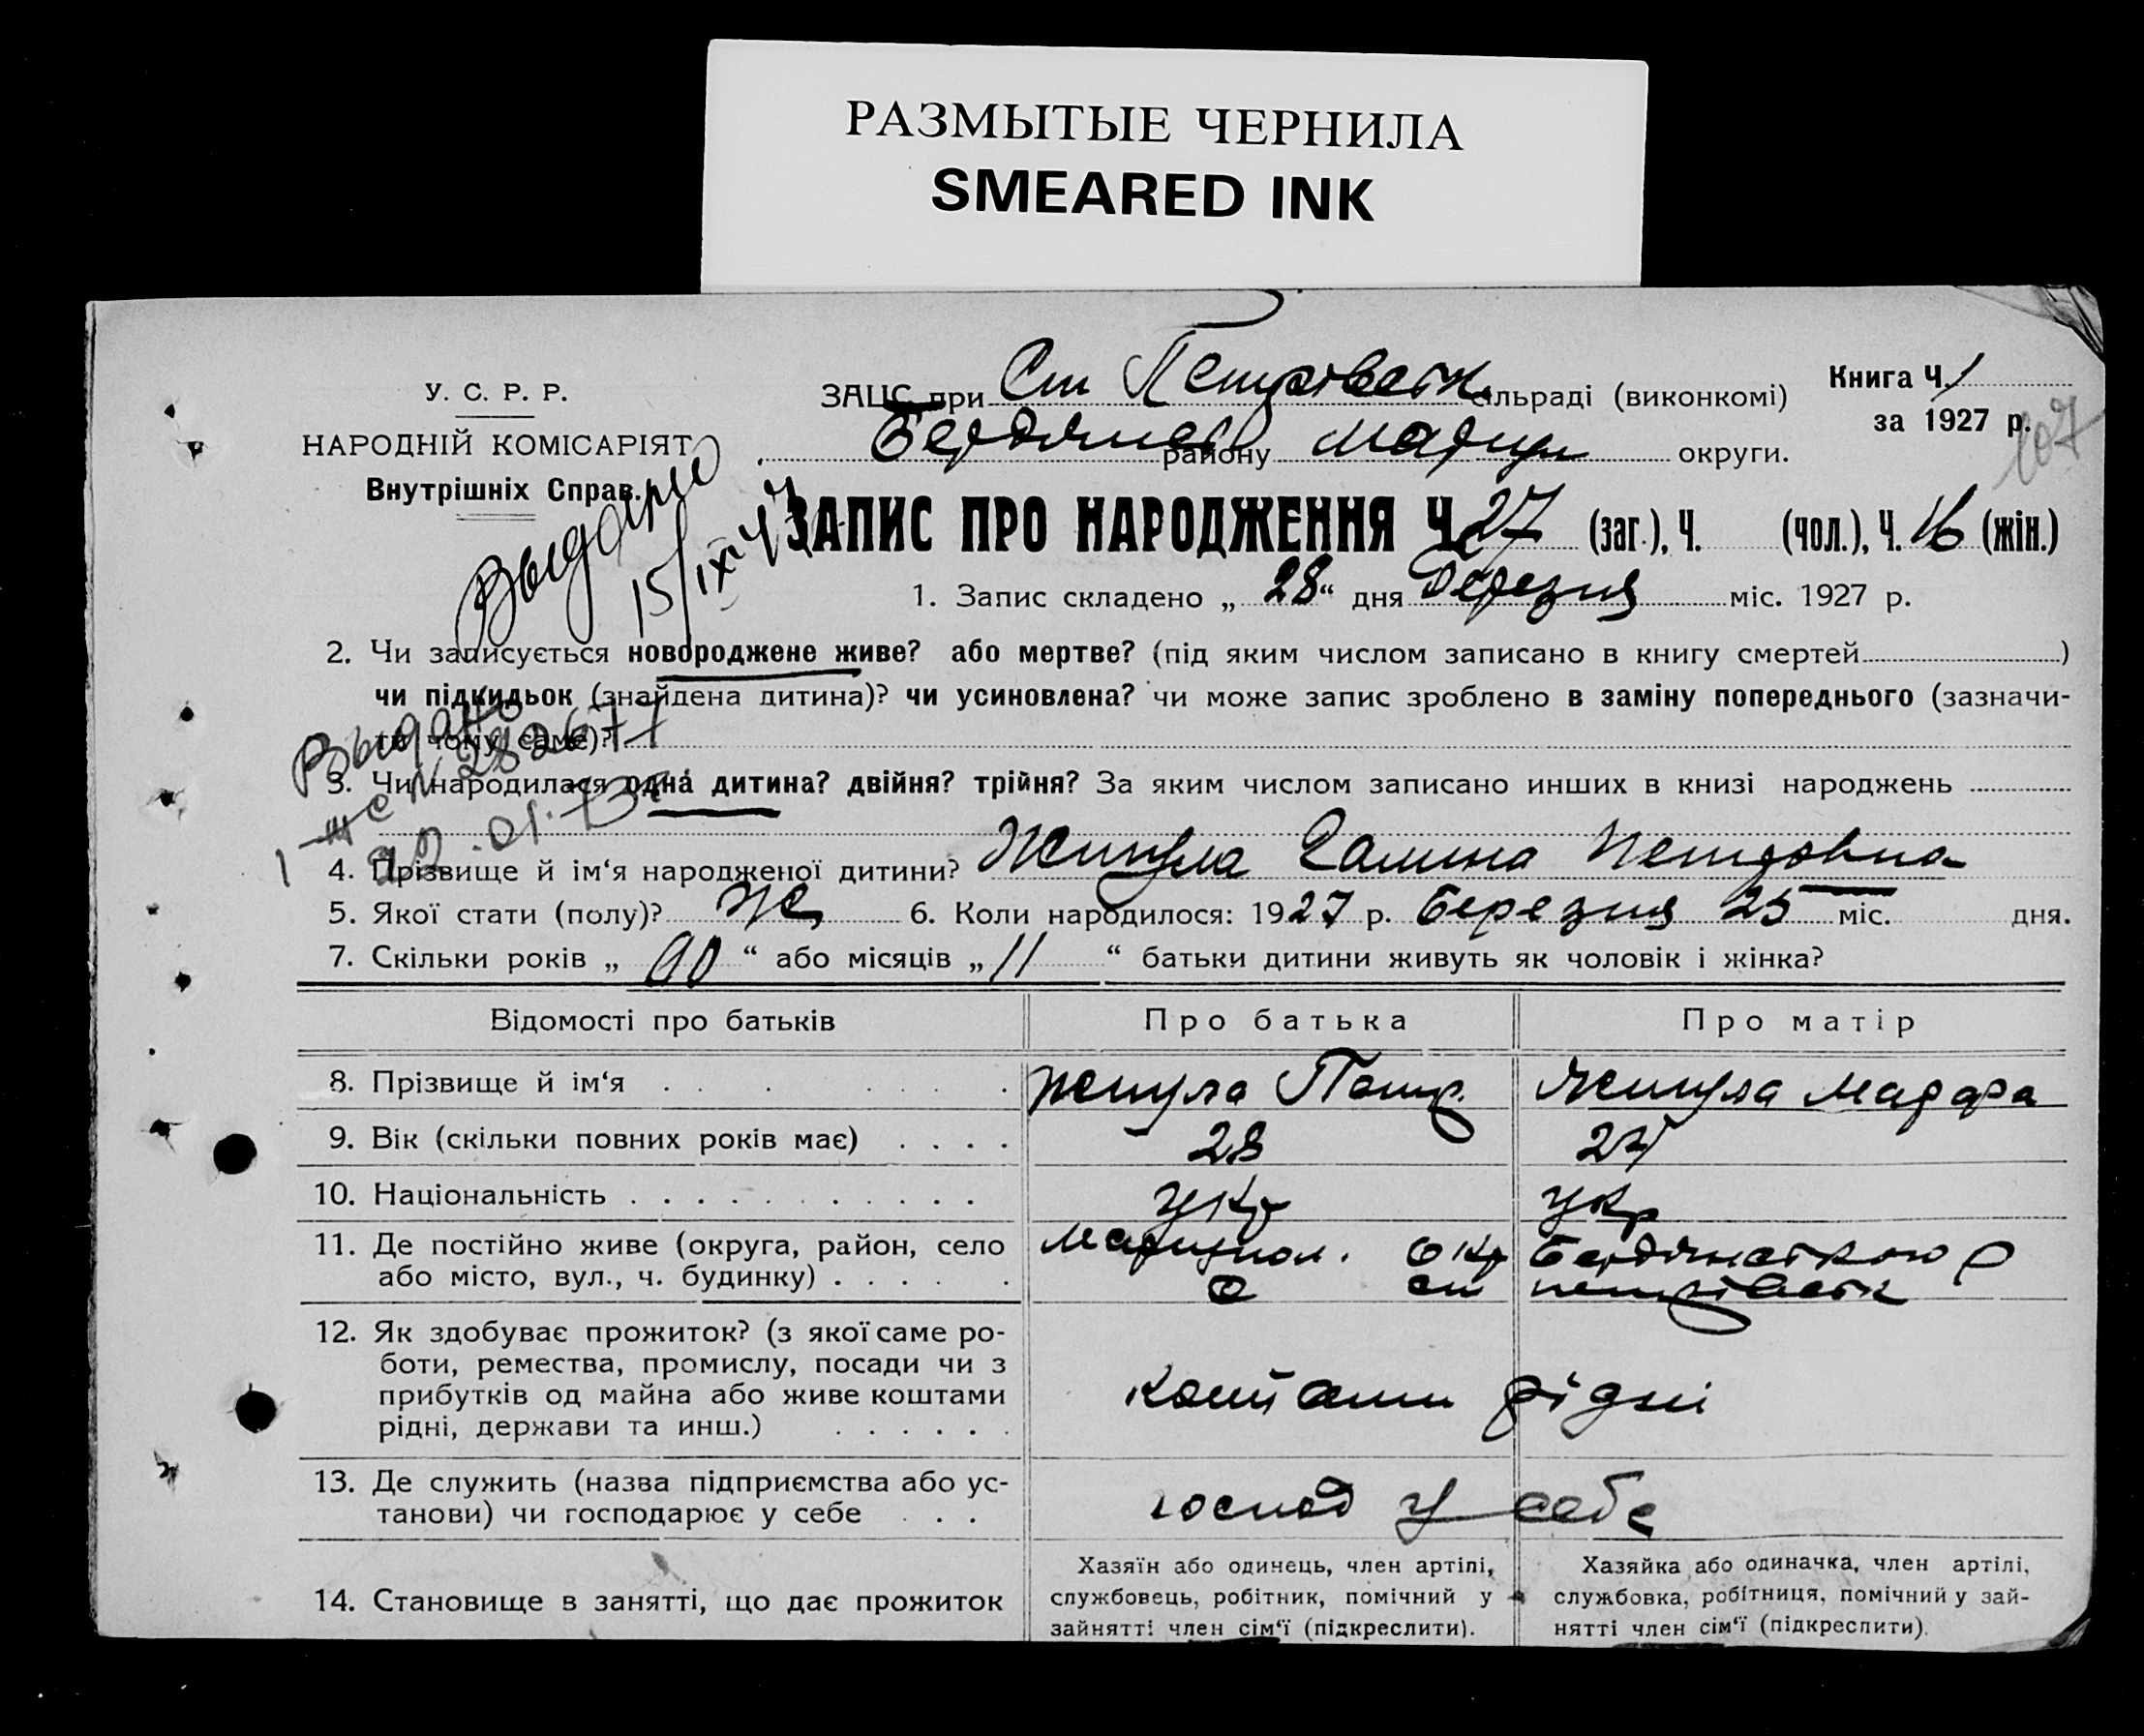 РАЗМЫТЫЕ ЧЕРНИЛА
SMEARED INK
У. С. Р. Р.
НАРОДНІЙ КОМІСАРІЯТ
Внутрішніх Справ.
ЗАЦС при Ст Петрівськ сільраді (виконкомі)
Бердянськ району Маріуп округи.
Книга Ч. 1
за 1927 р.
107
Выдано
15/IX-47
ЗАПИС ПРО НАРОДЖЕННЯ Ч. 27 (заг.), Ч. (чол.), Ч. 16 (жін.)
1. Запис складено „ 28 “ дня березня міс. 1927 р.
2. Чи записується новороджене живе? або мертве? (під яким числом записано в книгу смертей )
чи підкидьок (знайдена дитина)? чи усиновлена? чи може запис зроблено в заміну попереднього (зазначи-
ти чому саме)?
Выдано
3. Чи народилася одна дитина? двійня? трійня? За яким числом записано инших в книзі народжень
4. Прізвище й ім‘я народженої дитини? Жигула Галина Петровна
5. Якої стати (полу)? Ж 6. Коли народилося: 1927 р. березня 25 міс. дня.
7. Скільки років „ “ або місяців „ 11 “ батьки дитини живуть як чоловік і жінка?
Відомості про батьків Про батька Про матір
8. Прізвище й ім‘я Жигула Петр. Жигула
9. Вік (скільки повних років має) 28
10. Національність укр укр
11. Де постійно живе (округа, район, село Маріупол. окр Бердянською р
або місто, вул., ч. будинку) ст петрівськ
12. Як здобуває прожиток? (з якої саме ро-
боти, ремества, промислу, посади чи з
прибутків од майна або живе коштами
рідні, держави та инш.)
коштами рідні
13. Де служить (назва підприємства або ус-
танови) чи господарює у себе
господ у себе
14. Становище в занятті, що дає прожиток
Хазяїн або одинець, член артілі,
службовець, робітник, помічний у
зайнятті член сім‘ї (підкреслити).
Хазяйка або одиначка, член артілі,
службовка, робітниця, помічний у зай-
нятті член сім‘ї (підкреслити).